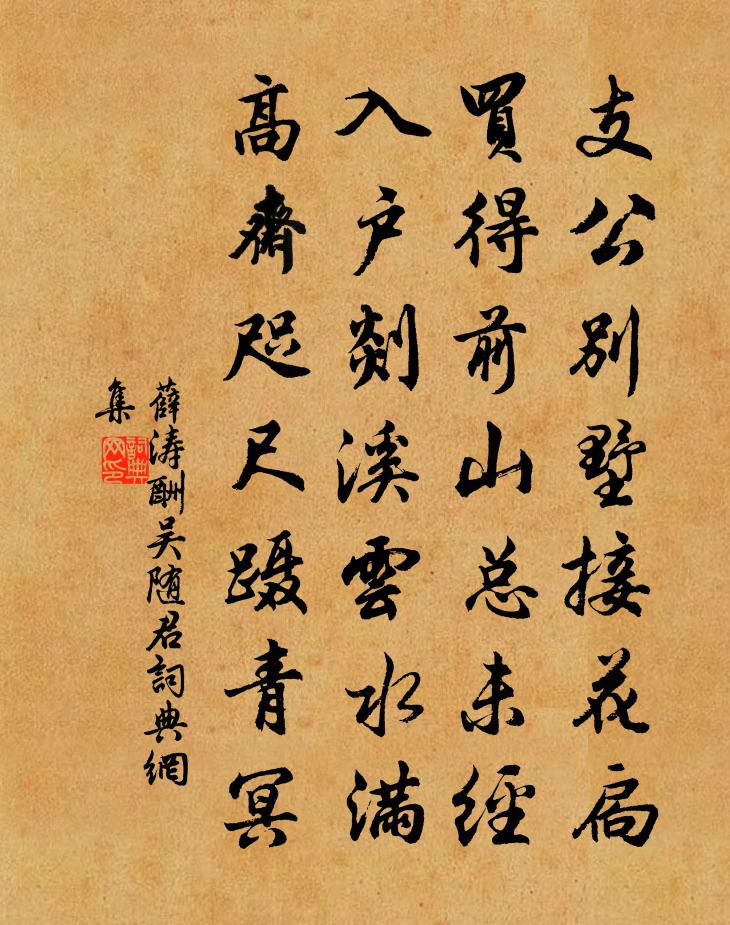 支公別墅接花扃
買得前山总未經
入户剡溪雲水满
高齋咫尺蹑青冥
薛涛酬吴随君詞典網
集